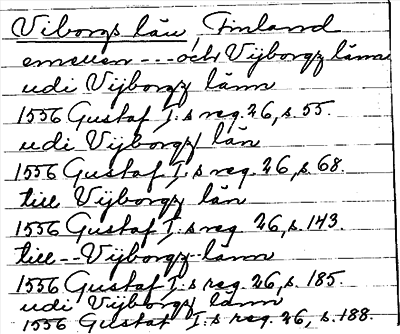 Viborgs län, Finland
emellen --- och Vijborgz länn
udi Vijborgz länn
1556 Gustaf I:s reg. 26, s. 55.
udi Vijborgz län
1556 Gustaf I:s reg. 26, s. 68.
till Vijborgz län
1556 Gustaf I:s reg. 26, s. 143.
till -- Vijborgz länn
1556 Gustaf I:s reg. 26, s. 185.
udi Vijborgz länn
1556 Gustaf I:s reg. 26, s. 188.